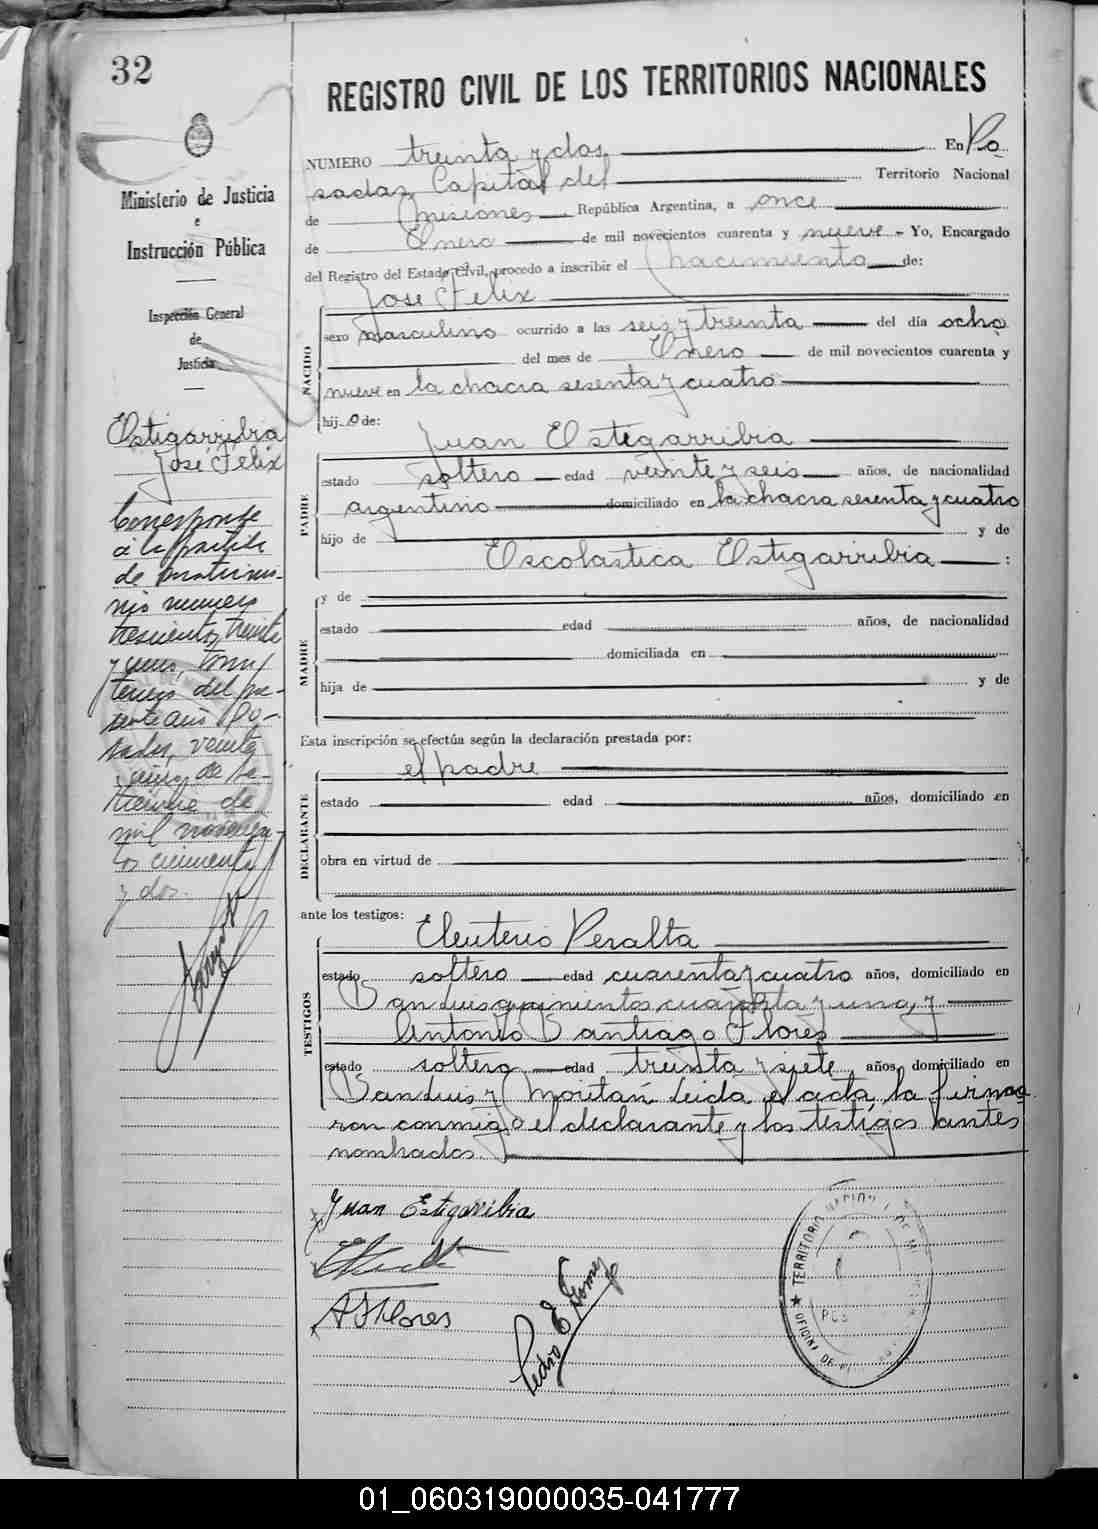 32
REGISTRO CIVIL DE LOS TERRITORIOS NACIONALES
Ministerio de Justicia
e
Instrucción Pública
Inspección General
de
Justicia
Estigarribia
José Felix
Corresponde
a la partida
de matrimo-
nio numero
trescientos treinta
y uno, tomo
tercero del pre-
sente año Po-
sadas, veinte
de Se-
tiembre de
mil novecien-
tos cincuenta
y dos.
NUMERO treinta y dos En Po
sadas Capital del Territorio Nacional
de Misiones República Argentina, a once
de Enero de mil novecientos cuarenta y nueve - Yo, Encargado
del Registro del Estado Civil, procedo a inscribir el nacimiento de:
José Felix
NACIDO
sexo masculino ocurrido a las seis y treinta del día ocho
del mes de Enero de mil novecientos cuarenta y
nueve en la chacra sesenta y cuatro
hijo de:
Juan Estegarribia
PADRE
estado soltero edad veinte y seis años, de nacionalidad
argentino domiciliado en la chacra sesenta y cuatro
hijo de y de
Escolastica Estigarribia :
MADRE
y de
estado edad años, de nacionalidad
domiciliada en
hija de y de
Esta inscripción se efectúa según la declaración prestada por:
el padre
DECLARANTE
estado edad años, domiciliado en
obra en virtud de
ante los testigos:
Eleuterio Peralta
TESTIGOS
estado soltero edad cuarenta y cuatro años, domiciliado en
San Luis quinientos cuarenta y uno, y
Antonio Santiago Flores
estado soltero edad treinta y siete años, domiciliado en
San Luis y Moritán Leida el acta, la firma
ron conmigo el declarante y los testigos antes
nombrados.
Juan Estigarribia
A S Flores
Pedro E Gomez
★ TERRITORIO NACIONAL DE MISIONES
OFICINA DE
POS
01_060319000035-041777